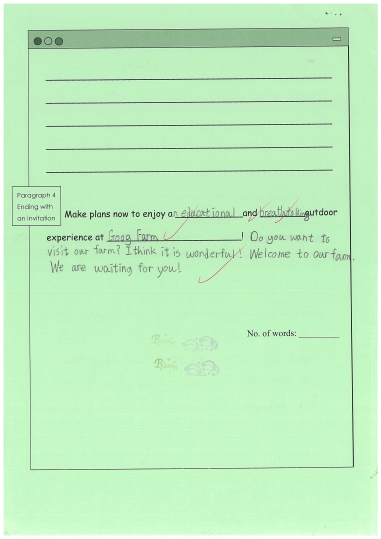 Paragraph 4
Ending with
an invitation
Make plans now to enjoy an educational and breathtaking outdoor
experience at Goog Farm ! Do you want to
visit our farm? I think it is wonderful! Welcome to our farm.
We are waiting for you!
No. of words: